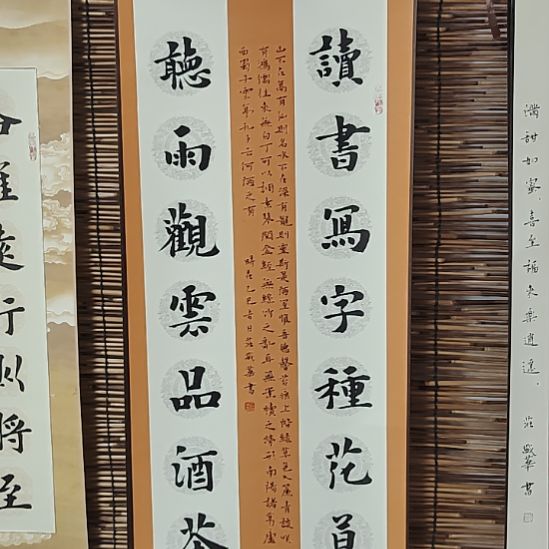 滿甜如蜜，喜至福來樂逍遙。
莊華書
讀書寫字種花草
山不在高有仙則名水不在深有龍則靈斯是陋室惟吾德馨苔痕上階綠草色入簾青談笑
有鴻儒往來無白丁可以調素琴閱金經無絲竹之亂耳無案牘之勞形南陽諸葛廬
西蜀子雲亭孔子云何陋之有
乙巳吉日莊華書
聽雨觀雲品酒茶
遠行將至